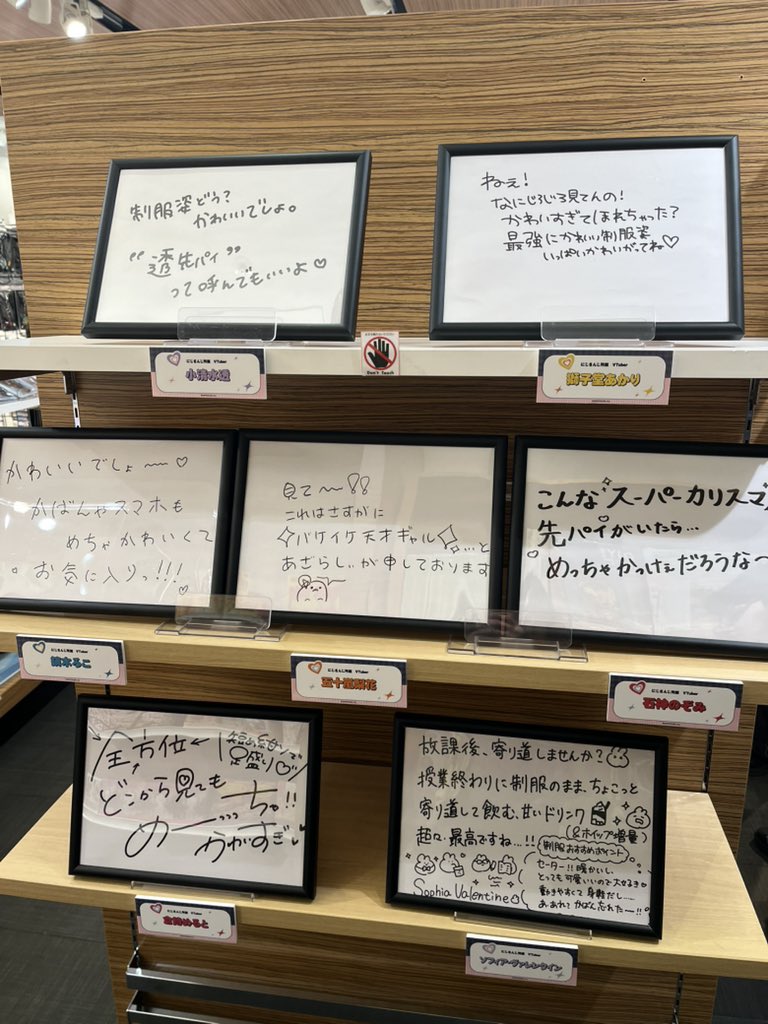 制服姿どう?
かわいいでしょ。
“透先パイ”
って呼んでもいいよ♡
ねぇ!
なにじろじろ見てんの!
かわいすぎてほれちゃった?
最強にかわいい制服姿
いっぱいかわいがってね♡
Don't Touch
にじさんじ所属 VTuber
小清水透
にじさんじ所属 VTuber
獅子堂あかり
かわいいでしょ〜♡
かばんやスマホも
めちゃかわいくて
お気に入りっ!!!
見て〜!!
これはさすがに
バケイケ天才ギャル …と
あざらしが申しております
こんなスーパーカリスマ
先パイがいたら…
めっちゃかっけぇだろうな〜
にじさんじ所属 VTuber
鏑木ろこ
にじさんじ所属 VTuber
五十嵐梨花
にじさんじ所属 VTuber
石神のぞみ
全方位←
どこから見ても
めーーーちゃ!!
かがすぎ
放課後、寄り道しませんか?
授業終わりに制服のまま、ちょこっと
寄り道して飲む、甘いドリンク
超々最高ですね…!!
(&ホイップ増量)
制服おすすめポイント
セーター!!暖かいし、
とっても可愛いので大好き
動きやすくて身軽だし…
あ、あれ?かばん忘れたー!!
Sophia Valentine
にじさんじ所属 VTuber
倉持めると
にじさんじ所属 VTuber
ソフィア・ヴァレンタイン